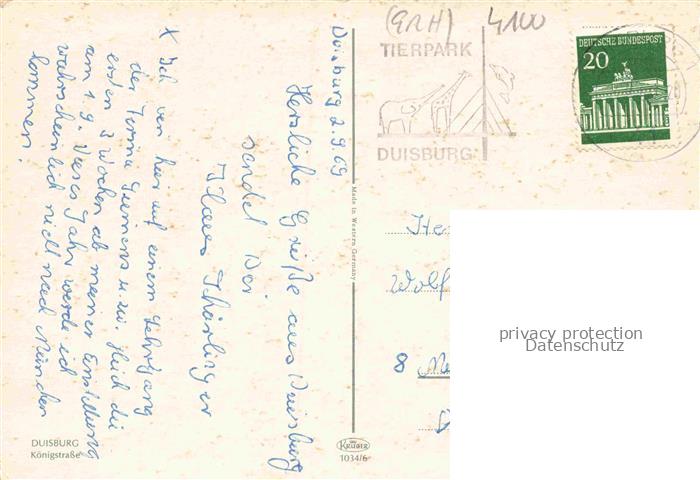 (GRH) 4100
TIERPARK
DUISBURG
DEUTSCHE BUNDESPOST
20
Duisburg 2.9.69
Herzliche Grüße aus Duisburg
sendet Dir
Klaus
x Ich bin hier auf einem Lehrgang
der Firma Siemens u. zw. gleich die
ersten 3 Wochen ab meiner Einstellung
am 1.9. Dieses Jahr werde ich
wahrscheinlich nicht nach München
kommen!
Made in Western Germany
Wolf
8
privacy protection
Datenschutz
DUISBURG
Königstraße
KRÜGER
1034/6